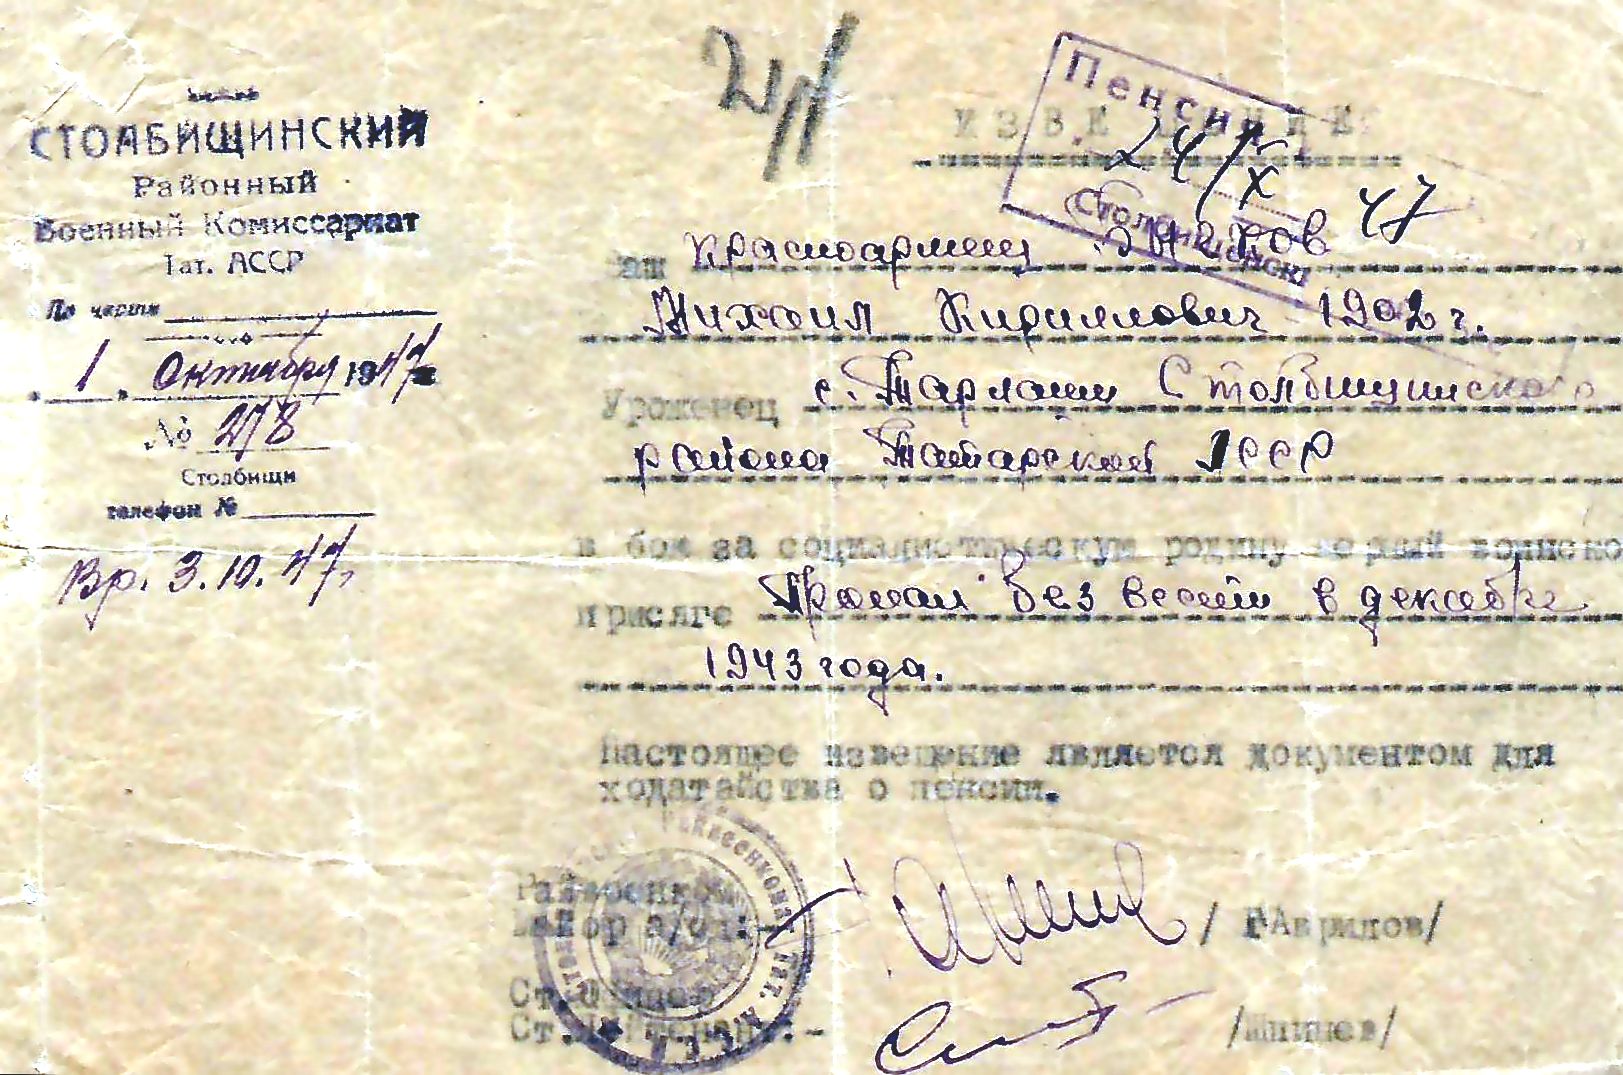 СТОЛБИЩИНСКИЙ
Районный
Военный Комиссариат
Тат. АССР
По части
1 Октября 1947
№ 278
Столбищи
телефон №
Вр. 3.10.47г.
ИЗВЕЩЕНИЕ
Пенсия
24/X 47
Ваш Красноармеец
Михаил Кириллович 1902 г.
Уроженец с. Тарлаши Столбищинского
района Татарской АССР
в бою за социалистическую родину верный воинско
присяге Пропал без вести в декабре
1943 года.
Настоящее извещение является документом для
ходатайства о пенсии.
Райвоенком
Майор а/сл:- / ГАврилов/
Ст.
Ст.Лейтенант:- /Шишов/